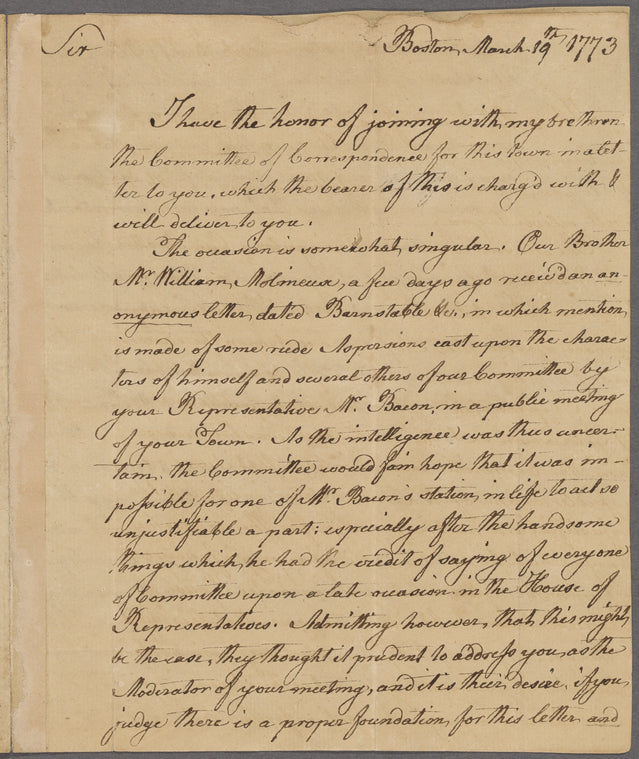 Sir
Boston March 19th 1773
I have the honor of joining with my brethren
the Committee of Correspondence for this town in a let-
ter to you, which the bearer of this is charg'd with &
will deliver to you.
The occasion is somewhat singular. Our Brother
Mr. William Molineux, a few days ago receiv'd an an-
onymous letter dated Barnstable &c., in which mention
is made of some rude Aspersions cast upon the charac-
ters of himself and several others of our Committee by
your Representative Mr. Bacon, in a public meeting
of your Town. As the intelligence was thus uncer-
tain, the Committee would fain hope that it was im-
possible for one of Mr. Bacon's station in life to act so
unjustifiable a part: especially after the handsome
things which he had the credit of saying of every one
of Committee upon a late occasion in the House of
Representatives. Admitting however, that this might
be the case, they thought it prudent to address you, as the
Moderator of your meeting, and it is their desire, if you
judge there is a proper foundation for this letter and